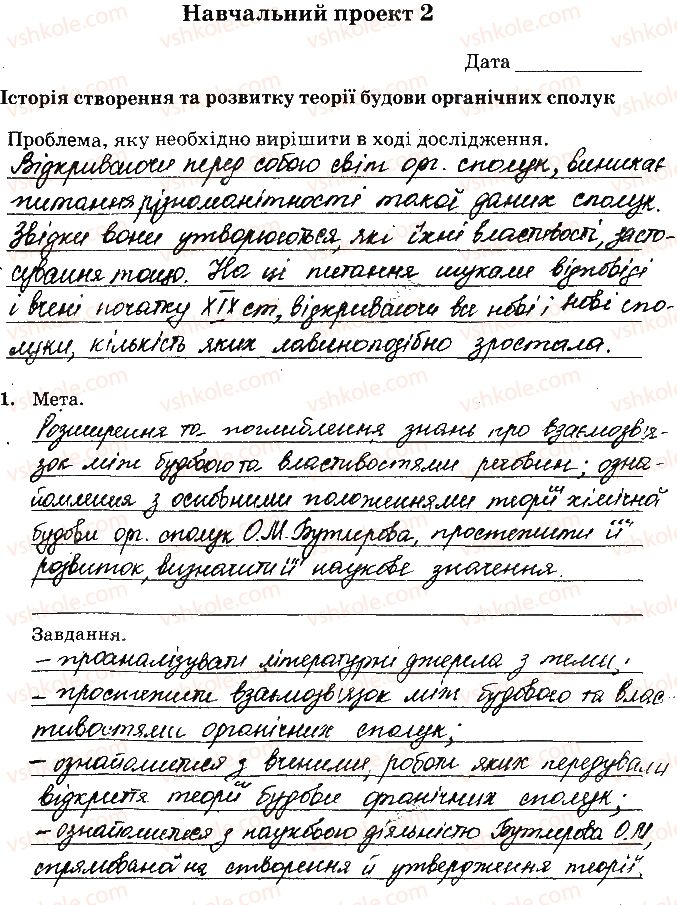 Навчальний проект 2
Дата
Історія створення та розвитку теорії будови органічних сполук
Проблема, яку необхідно вирішити в ході дослідження.
Відкриваючи перед собою світ орг. сполук, виникає
питання різноманітності такої даних сполук.
Звідки вони утворюються, які їхні властивості, засто-
сування тощо. На ці питання шукали відповіді
і вчені початку XIX ст, відкриваючи все нові і нові спо-
луки, кількість яких лавиноподібно зростала.
1. Мета.
Розширення та поглиблення знань про взаємозв'я-
зок між будовою та властивостями речовин; озна-
йомлення з основними положеннями теорії хімічної
будови орг. сполук О.М. Бутлерова, простежити її
розвиток, визначити її наукове значення.
Завдання.
- проаналізувати літературні джерела з теми;
- простежити взаємозв'язок між будовою та влас-
тивостями органічних сполук;
- ознайомитися з вченими, роботи яких передували
відкриття теорії будови органічних сполук;
- ознайомитися з науковою діяльністю Бутлерова О.М,
спрямованой на створення й утвердження теорії.
vshkole.com